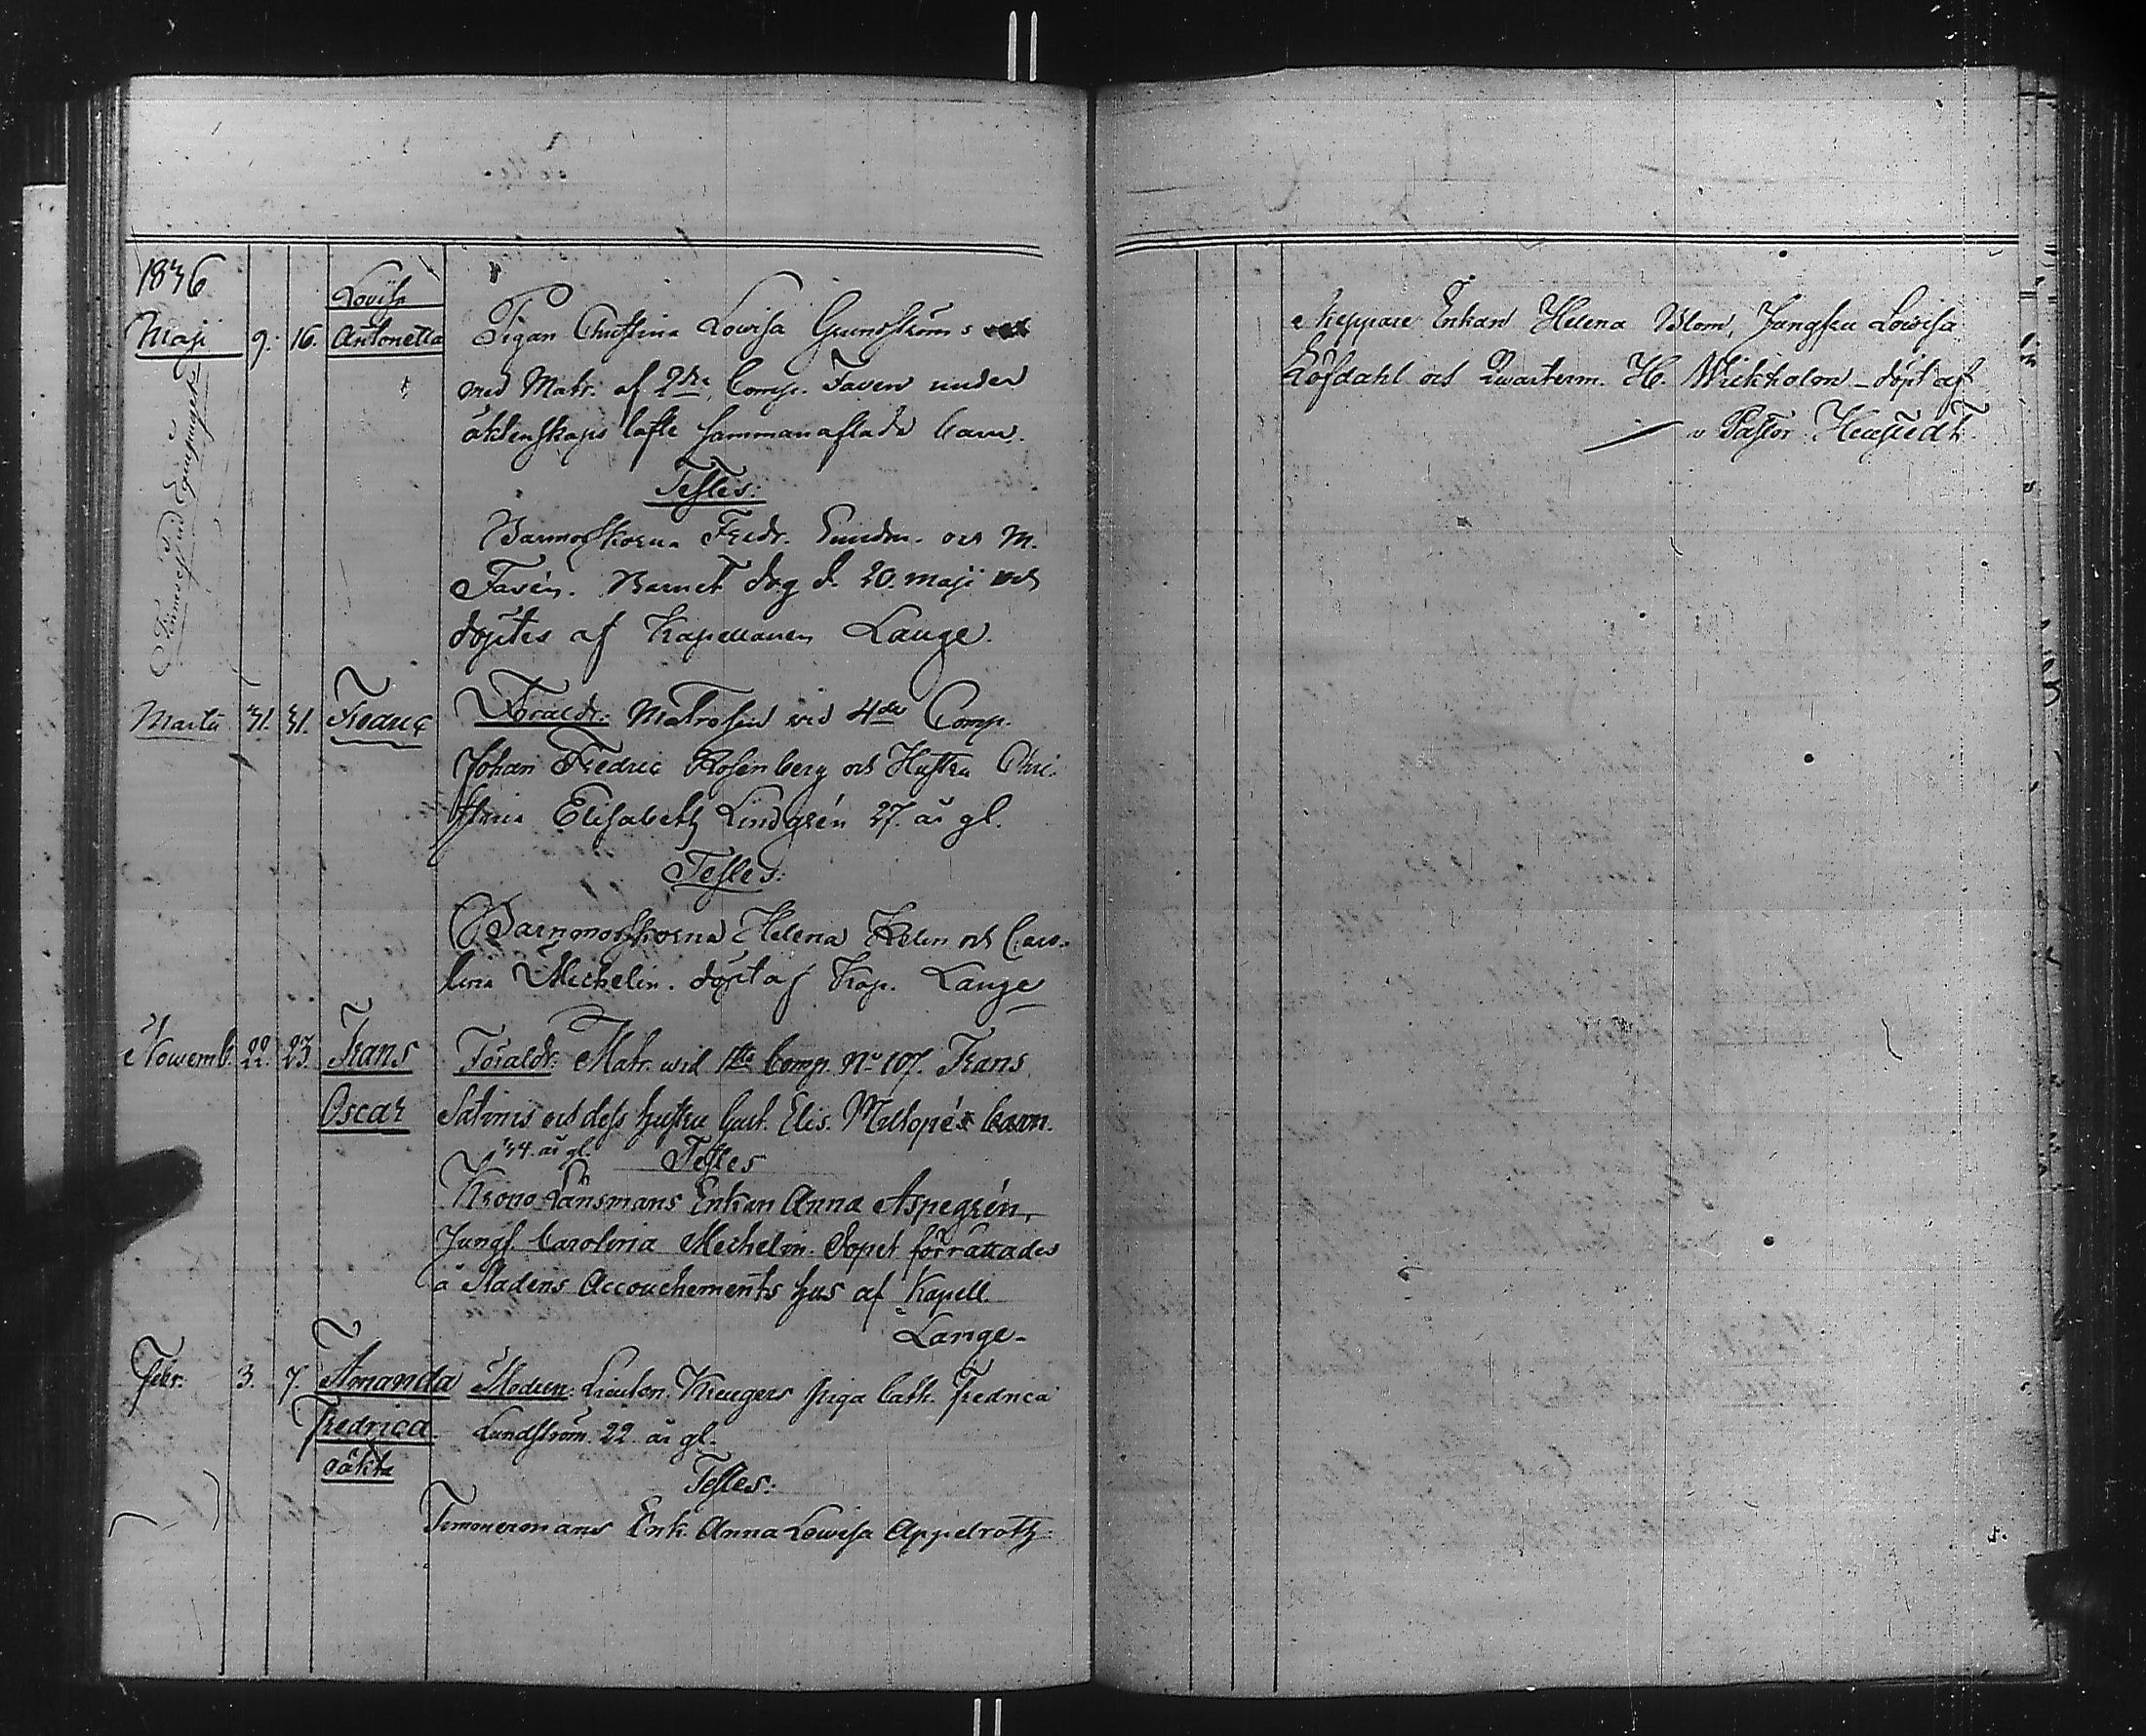 1836
Lovisa
Maji 9. 16. Antonetta Pigan Christina Lovisa Grundströms
med Matr: af 2dra Comp. Faven under
äktenskaps löfte sammanaflade barn.
Testes:
Barnmorskorna Fredr. och M.
Favén. Barnet dog d. 20. maji och
döptes af Kapellanen Lange.
Finnes i Equipaget
Martii 31. 31. Fredric Föräldr: Matrosen vid 4de Comp.
Johan Fredric Rosenberg och Hustru Chri-
stina Elisabeth Lindgrén 27. år gl.
Testes:
Barnmorskorna Helena Kelen och Caro-
lina Mechelin. döpt af Kap. Lange
Novemb. 22. 23. Frans Föräldr: Matr. vid 1sta Comp. No 107. Frans
Oscar och dess hustru Gust. Elis. barn.
34. år gl. Testes
Krono Länsmans Enkan Anna Aspegrén,
Jungf. Carolina Mechelin. Dopet förrättades
å Stadens Accouchements hus af Kapell.
Lange-
Febr: 3. 7. Amanda Modren: Lieuten. Kreugers piga Cath. Fredrica
Fredrica Lundström 22 år gl.
oäkta
Testes:
Timmermans Enk. Anna Lovisa Appelroth
Skeppare Enkan Helena Blom, Jungfru Lovisa
Löfdahl och Quarterm. H. Wickholm - döpt af
v Pastor